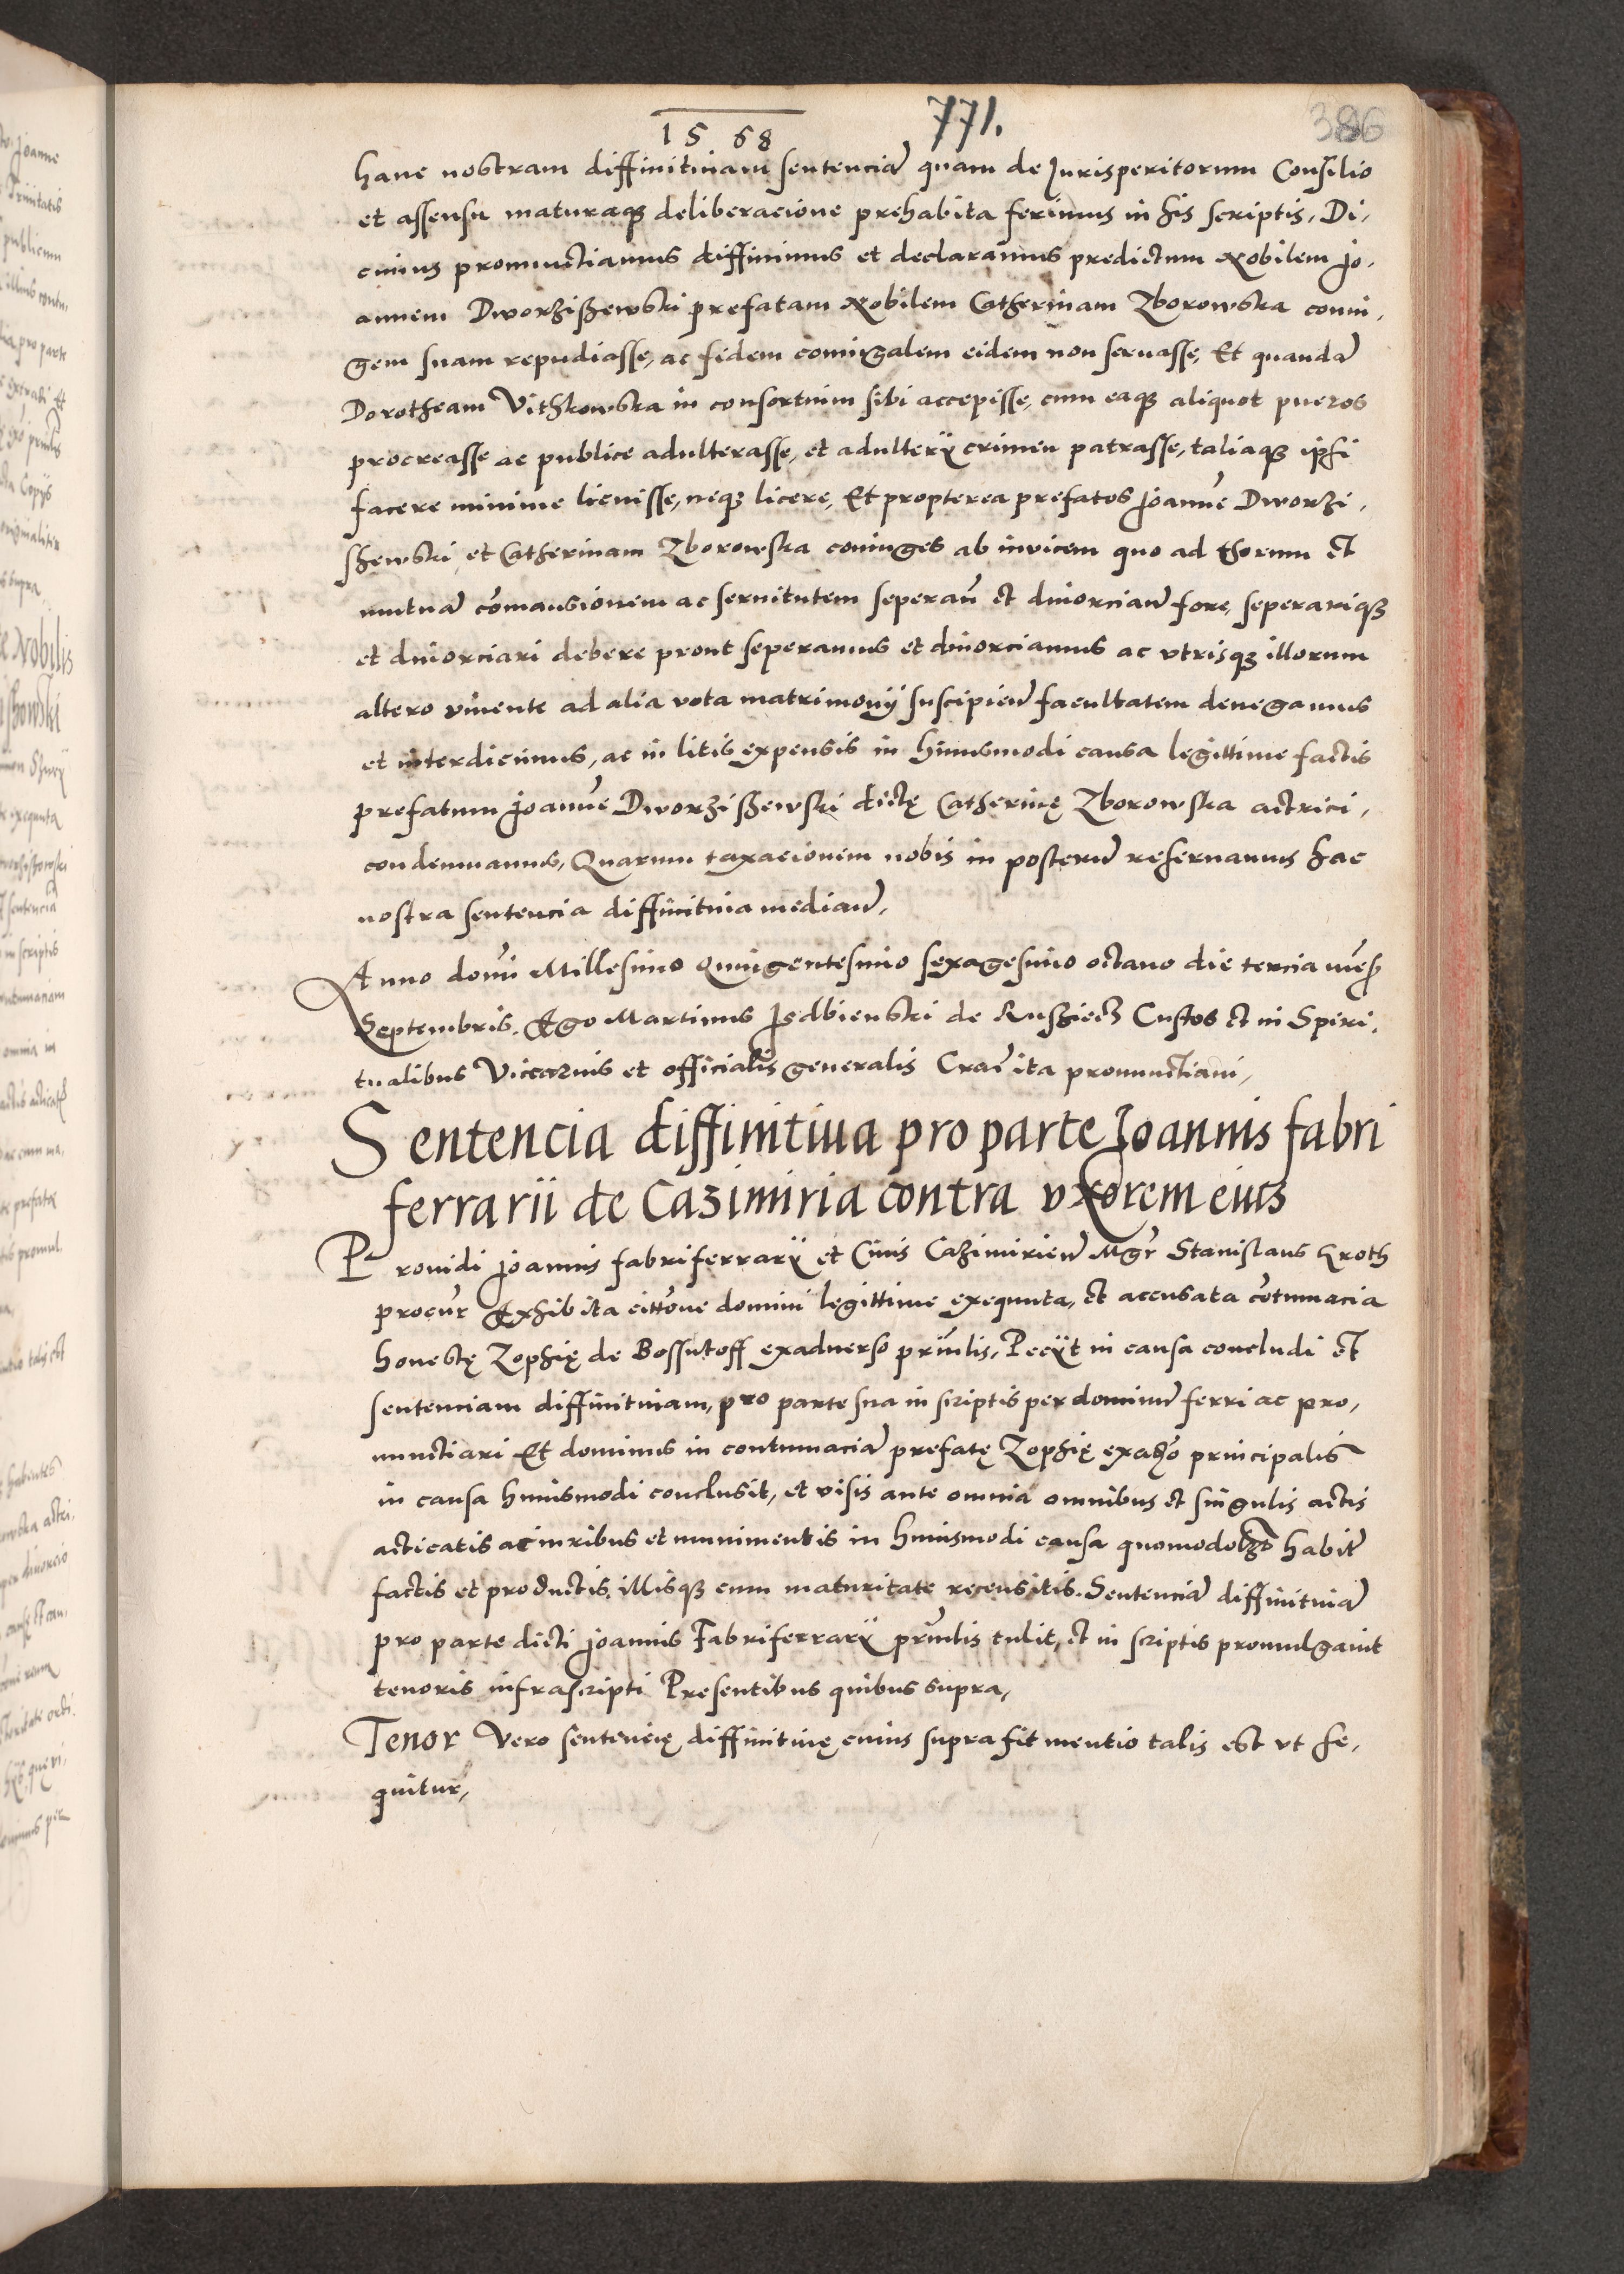 1568 771. 386
hanc nostram diffinitiuam sentenciã quam de Jurisperitorum Consilio
et assensu maturaq3 deliberacione prehabita ferimus in his scriptis, Di,
cimus pronunctiamus diffinimus et declaramus predictum Nobilem Jo,
annem Dworzishewski prefatam Nobilem Catherinam Zborowska coniu,
gem suam repudiasse, ac fidem coniugalem eidem non seruasse, Et quandã
Dorotheam Vithkowska in consortium sibi accepisse, cum eaq3 aliquot pueros
procreasse ac publice adulterasse, et adulterÿ crimen patrasse, taliaq3 ipsi
facere minime licuisse, neq3 licere, Et propterea prefatos Joannẽ Dworzi,
shewski et Catherinam Zborowska coniuges ab inuicem quo ad thorum et
mutuã cõmansionem ac seruitutem seperañ et diuorciañ fore, seperariq3
et diuorciari debere prout seperamus et diuorciamus ac vtrisq3 illorum
altero viuente ad alia vota matrimonÿ suscipieñ facultatem denegamus
et interdicimus, ac in litis expensis in huiusmodi causa legittime factis
prefatum Joannẽ Dworzishewski dictę Catherinę Zborowska actrici,
condemnamus, Quarum taxacionem nobis in posterũ reseruamus hac
nostra sentencia diffinitiua mediañ,
Anno domĩ Millesimo Quingentesimo sexagesimo octauo die tercia meñs
Septembris. Ego Martinus Isdbienski de Rushiecz Custos et in Spiri,
tualibus Vicarius et officialis generalis Craĩ ita pronunctiaui,
Sentencia diffinitiua pro parte Joannis fabri
ferrarii de Cazimiria contra vxorem eius
Prouidi Joannis fabriferrarÿ et Ciuis Cazimirieñ Mgr̃ Stanislaus Kroth
procur̃ Exhibita cittõne domini legittime exequuta, et accusata cõtumacia
honestę Zophię de Bossutoff exaduerso prinlis, Pecÿt in causa concludi et
sentenciam diffinitiuam, pro parte sua in scriptis per dominũ ferri ac pro,
nunctiari Et dominus in contumaciã prefatę Zophię exadũo principalis
in causa huiusmodi conclusit, et visis ante omnia omnibus et singulis actis
acticatis ac iuribus et munimentis in huiusmodi causa quomodolz habit̃
factis et productis, illisq3 cum maturitate recensitis. Sentenciã diffinitiuã
pro parte dicti Joannis Fabriferrarÿ prinlis tulit, et in scriptis promulgauit
tenoris infrascripti Presentibus quibus supra,
Tenor Vero sentencię diffinitiuę cuius supra fit mentio talis est vt se,
quitur,